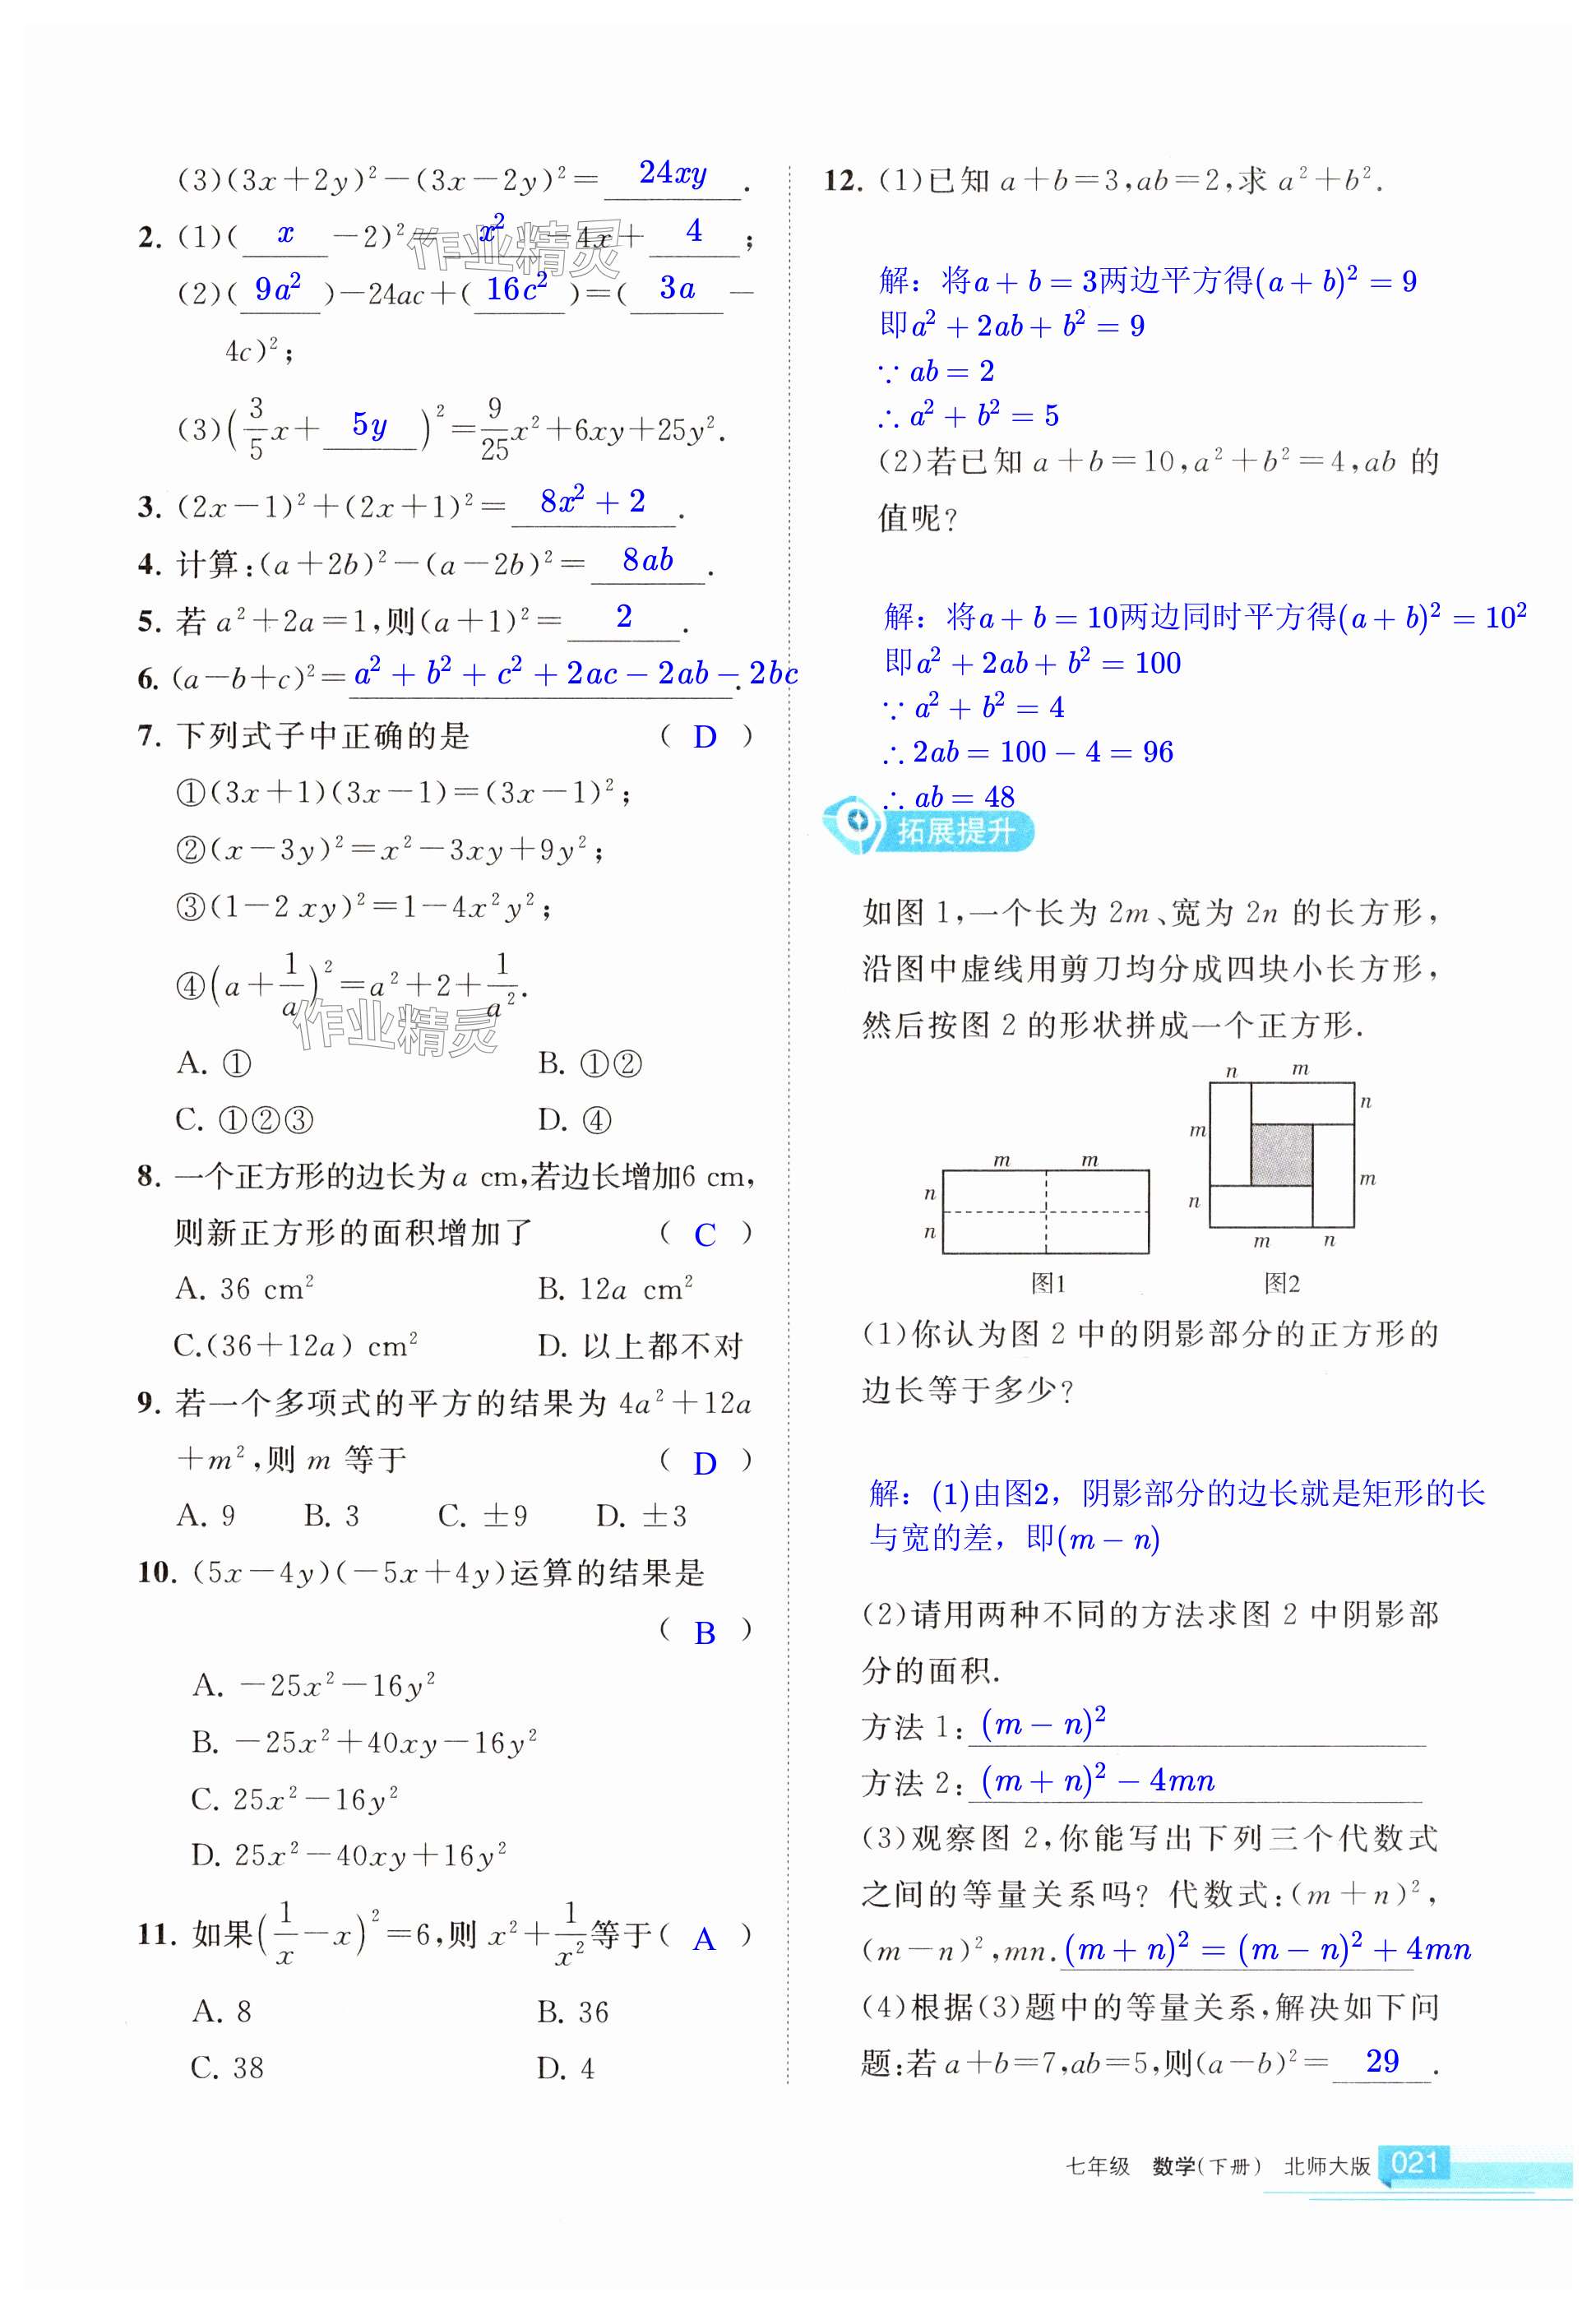 (3)(3x+2y)²-(3x-2y)²= 24xy .
2. (1)( x -2)²= x² -4x+ 4 ;
(2)( 9a² )-24ac+( 16c² )=( 3a -
4c)²;
(3)(3/5 x+ 5y )²=9/25 x²+6xy+25y².
3. (2x-1)²+(2x+1)²= 8x²+2 .
4. 计算:(a+2b)²-(a-2b)²= 8ab .
5. 若 a²+2a=1,则(a+1)²= 2 .
6. (a-b+c)²= a²+b²+c²+2ac-2ab-2bc .
7. 下列式子中正确的是 ( D )
①(3x+1)(3x-1)=(3x-1)²;
②(x-3y)²=x²-3xy+9y²;
③(1-2xy)²=1-4x²y²;
④(a+1/a)²=a²+2+1/a².
A. ① B. ①②
C. ①②③ D. ④
8. 一个正方形的边长为a cm,若边长增加6 cm,
则新正方形的面积增加了 ( C )
A. 36 cm² B. 12a cm²
C.(36+12a) cm² D. 以上都不对
9. 若一个多项式的平方的结果为 4a²+12a
+m²,则 m 等于 ( D )
A. 9 B. 3 C. ±9 D. ±3
10. (5x-4y)(-5x+4y)运算的结果是
( B )
A. -25x²-16y²
B. -25x²+40xy-16y²
C. 25x²-16y²
D. 25x²-40xy+16y²
11. 如果(1/x-x)²=6,则 x²+1/x²等于( A )
A. 8 B. 36
C. 38 D. 4
作业精灵
作业精灵
12. (1)已知 a+b=3,ab=2,求 a²+b².
解：将a+b=3两边平方得(a+b)²=9
即a²+2ab+b²=9
∵ ab=2
∴ a²+b²=5
(2)若已知 a+b=10,a²+b²=4,ab 的
值呢?
解：将a+b=10两边同时平方得(a+b)²=10²
即a²+2ab+b²=100
∵ a²+b²=4
∴ 2ab=100-4=96
∴ ab=48
拓展提升
如图 1,一个长为 2m、宽为 2n 的长方形,
沿图中虚线用剪刀均分成四块小长方形,
然后按图 2 的形状拼成一个正方形.
m m
n
n
图1
n m
n
m
m
n
m n
图2
(1)你认为图 2 中的阴影部分的正方形的
边长等于多少?
解：(1)由图2，阴影部分的边长就是矩形的长
与宽的差，即(m-n)
(2)请用两种不同的方法求图 2 中阴影部
分的面积.
方法 1: (m-n)²
方法 2: (m+n)²-4mn
(3)观察图 2,你能写出下列三个代数式
之间的等量关系吗? 代数式:(m+n)²,
(m-n)²,mn. (m+n)²=(m-n)²+4mn
(4)根据(3)题中的等量关系,解决如下问
题:若 a+b=7,ab=5,则(a-b)²= 29 .
七年级 数学(下册) 北师大版 021